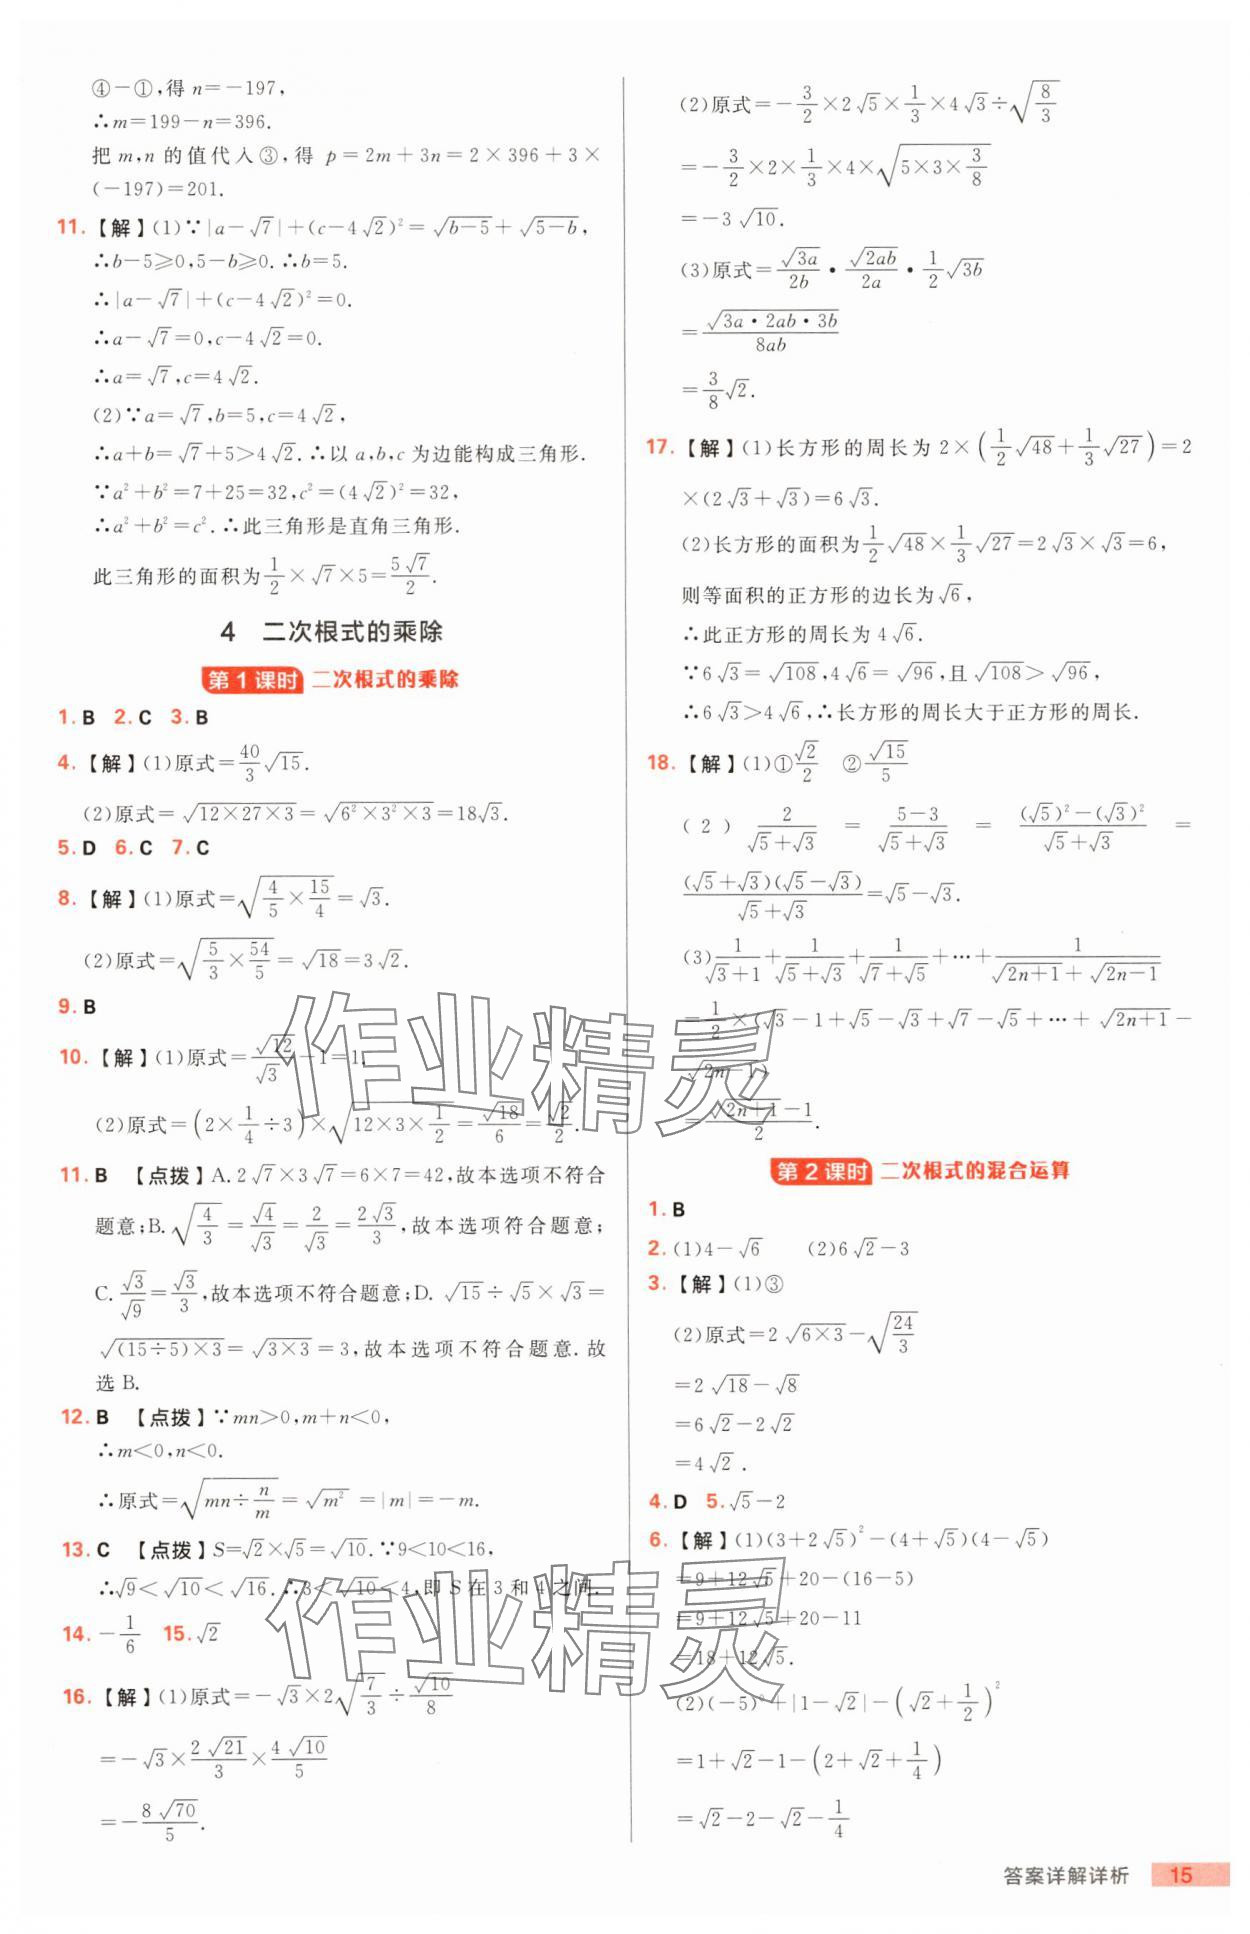 ④-①,得 n=-197,
∴m=199-n=396.
把 m,n 的值代入③,得 p=2m+3n=2×396+3×
(-197)=201.
11.【解】(1)∵|a-√7|+(c-4√2)²=√(b-5)+√(5-b),
∴b-5≥0,5-b≥0.∴b=5.
∴|a-√7|+(c-4√2)²=0.
∴a-√7=0,c-4√2=0.
∴a=√7,c=4√2.
(2)∵a=√7,b=5,c=4√2,
∴a+b=√7+5>4√2.∴以 a,b,c 为边能构成三角形.
∵a²+b²=7+25=32,c²=(4√2)²=32,
∴a²+b²=c².∴此三角形是直角三角形.
此三角形的面积为1/2×√7×5=5√7/2.
4 二次根式的乘除
第1课时 二次根式的乘除
1. B 2. C 3. B
4.【解】(1)原式=40/3√15.
(2)原式=√(12×27×3)=√(6²×3²×3)=18√3.
5. D 6. C 7. C
8.【解】(1)原式=√(4/5×15/4)=√3.
(2)原式=√(5/3×54/5)=√18=3√2.
9. B
10.【解】(1)原式=√12/√3-1=1.
(2)原式=(2×1/4÷3)×√(12×3×1/2)=√18/6=√2/2.
11. B 【点拨】A.2√7×3√7=6×7=42,故本选项不符合
题意;B.√(4/3)=√4/√3=2/√3=2√3/3,故本选项符合题意;
C.√3/√9=√3/3,故本选项不符合题意;D.√15÷√5×√3=
√((15÷5)×3)=√(3×3)=3,故本选项不符合题意.故
选 B.
12. B 【点拨】∵mn>0,m+n<0,
∴m<0,n<0.
∴原式=√(mn÷n/m)=√m²=|m|=-m.
13. C 【点拨】S=√2×√5=√10.∵9<10<16,
∴√9<√10<√16.∴3<√10<4,即 S 在 3 和 4 之间.
14. -1/6 15. √2
16.【解】(1)原式=-√3×2√(7/3)÷√10/8
=-√3×2√21/3×4√10/5
=-8√70/5.
(2)原式=-3/2×2√5×1/3×4√3÷√(8/3)
=-3/2×2×1/3×4×√(5×3×3/8)
=-3√10.
(3)原式=√3a/2b·√2ab/2a·1/2√3b
=√(3a·2ab·3b)/8ab
=3/8√2.
17.【解】(1)长方形的周长为 2×(1/2√48+1/3√27)=2
×(2√3+√3)=6√3.
(2)长方形的面积为1/2√48×1/3√27=2√3×√3=6,
则等面积的正方形的边长为√6,
∴此正方形的周长为 4√6.
∵6√3=√108,4√6=√96,且√108>√96,
∴6√3>4√6,∴长方形的周长大于正方形的周长.
18.【解】(1)①√2/2 ②√15/5
(2) 2/(√5+√3) = (5-3)/(√5+√3) = ((√5)²-(√3)²)/(√5+√3) =
(√5+√3)(√5-√3)/(√5+√3)=√5-√3.
(3)1/(√3+1)+1/(√5+√3)+1/(√7+√5)+…+1/(√(2n+1)+√(2n-1))
=1/2×(√3-1+√5-√3+√7-√5+…+√(2n+1)-
√(2n-1))
=(√(2n+1)-1)/2.
第2课时 二次根式的混合运算
1. B
2. (1)4-√6 (2)6√2-3
3.【解】(1)③
(2)原式=2√(6×3)-√(24/3)
=2√18-√8
=6√2-2√2
=4√2.
4. D 5. √5-2
6.【解】(1)(3+2√5)²-(4+√5)(4-√5)
=9+12√5+20-(16-5)
=9+12√5+20-11
=18+12√5.
(2)(-5)⁰+|1-√2|-(√2+1/2)²
=1+√2-1-(2+√2+1/4)
=√2-2-√2-1/4
答案详解详析 15
作业精灵
作业精灵